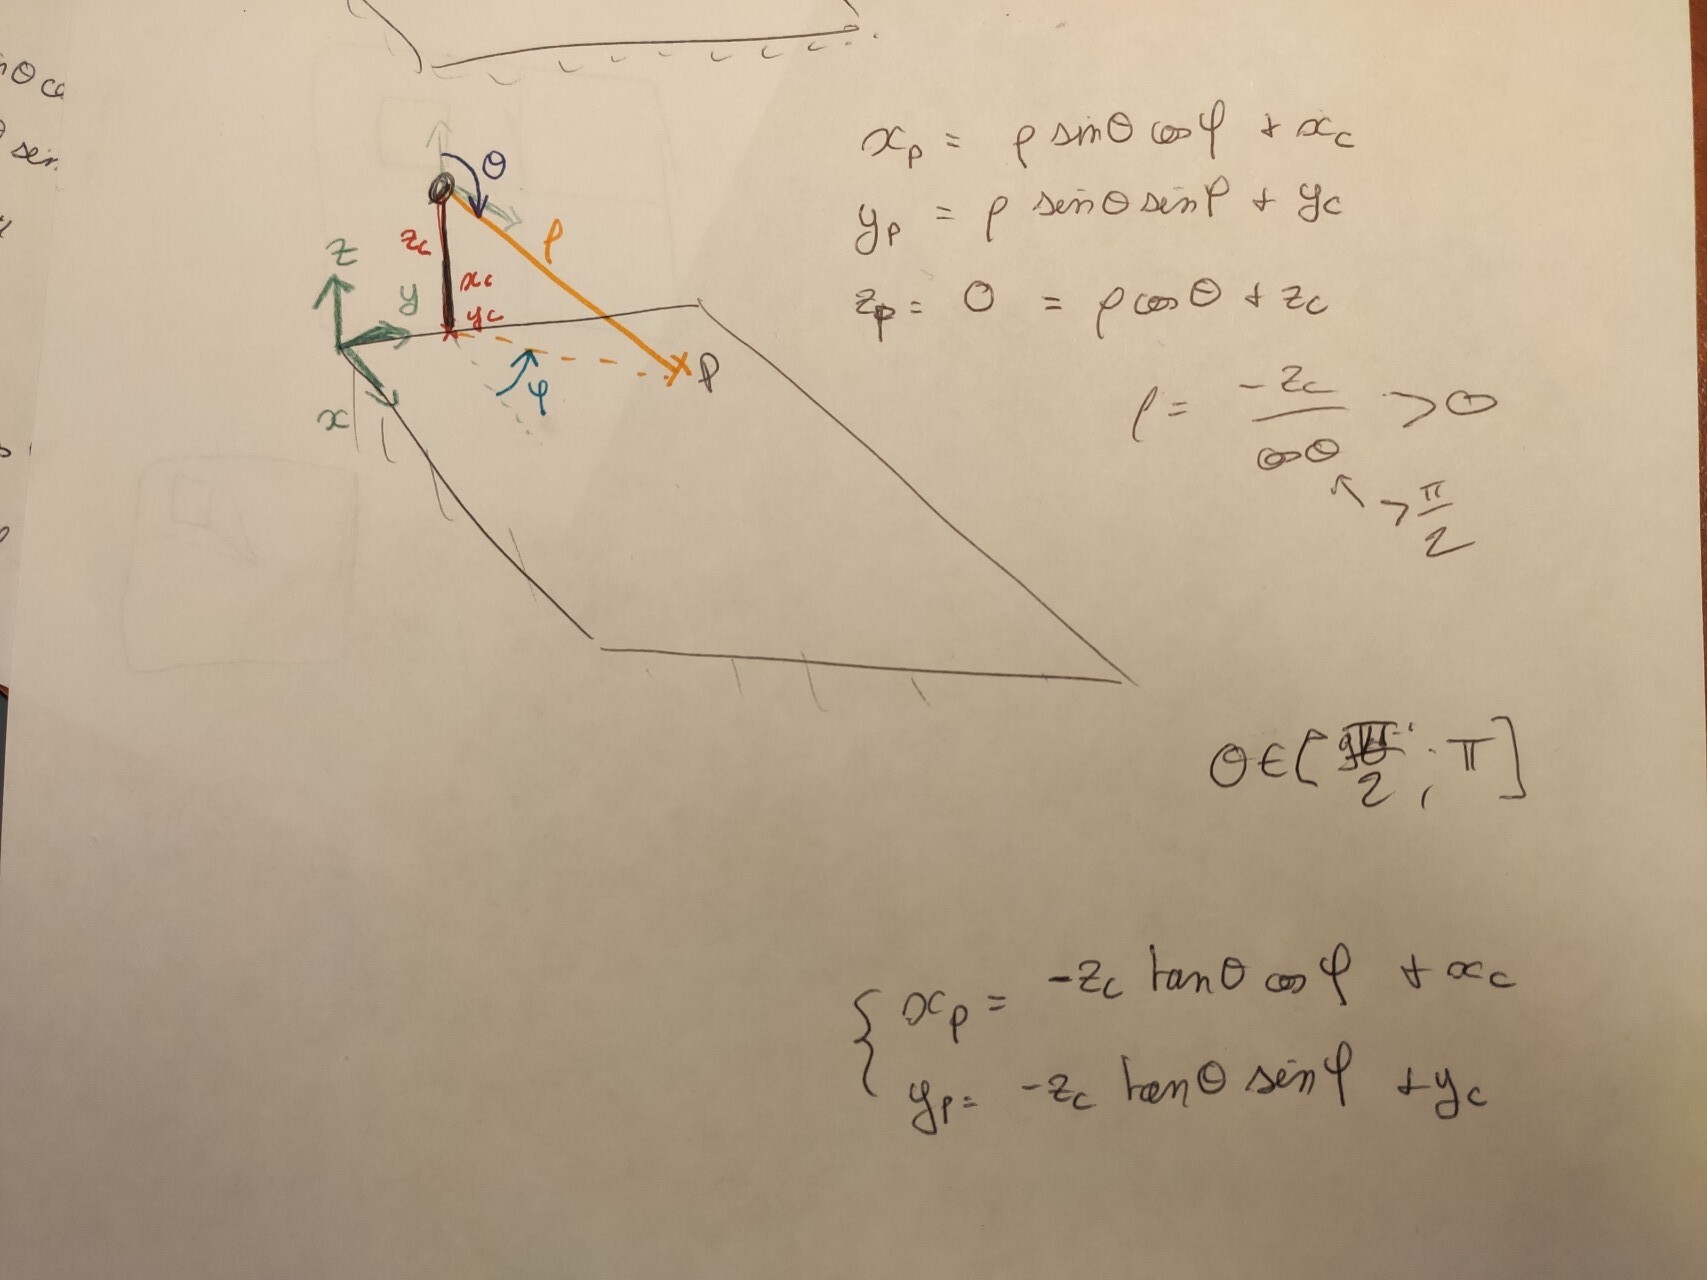 θ
z_c
ρ
z
x_c
y
y_c
P
φ
x
x_P = ρ sinθ cosφ + x_c
y_P = ρ sinθ sinφ + y_c
z_P = 0 = ρ cosθ + z_c
ρ = -z_c / cosθ > 0
> π/2
θ ∈ [ π/2 ; π ]
{ x_P = -z_c tanθ cosφ + x_c
y_P = -z_c tanθ sinφ + y_c